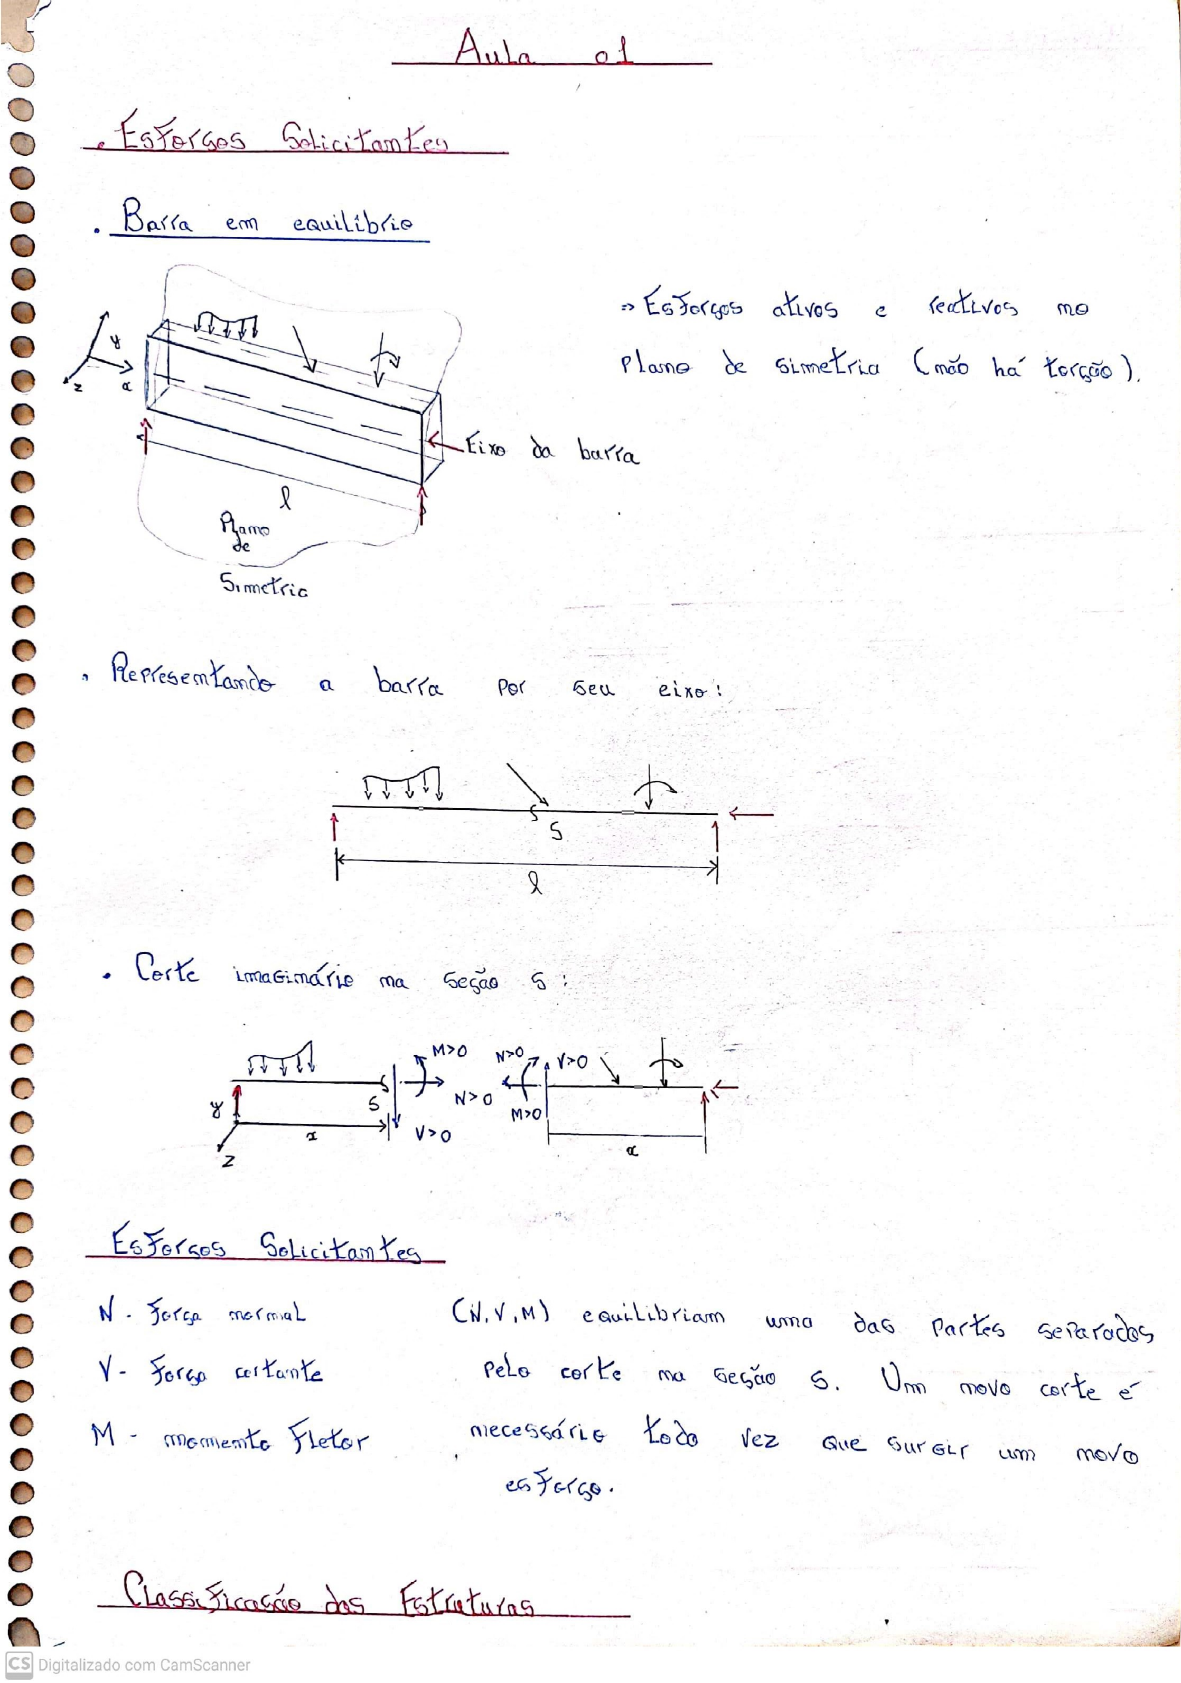 Aula 01
. Esforços Solicitantes
. Barra em equilíbrio
⇒ Esforços ativos e reativos no
plano de simetria (não há torção).
y
z
x
Eixo da barra
l
Plano
de
Simetria
. Representando a barra por seu eixo:
S
l
. Corte imaginário na seção S:
M>0 N>0 V>0
S N>0 M>0
y
x V>0 x
z
Esforços Solicitantes
N - Força normal
(N, V, M) equilibriam uma das partes separadas
V - Força cortante
pelo corte na seção S. Um novo corte é
M - momento Fletor
necessário toda vez que surgir um novo
esforço.
Classificação das Estruturas
CS Digitalizado com CamScanner